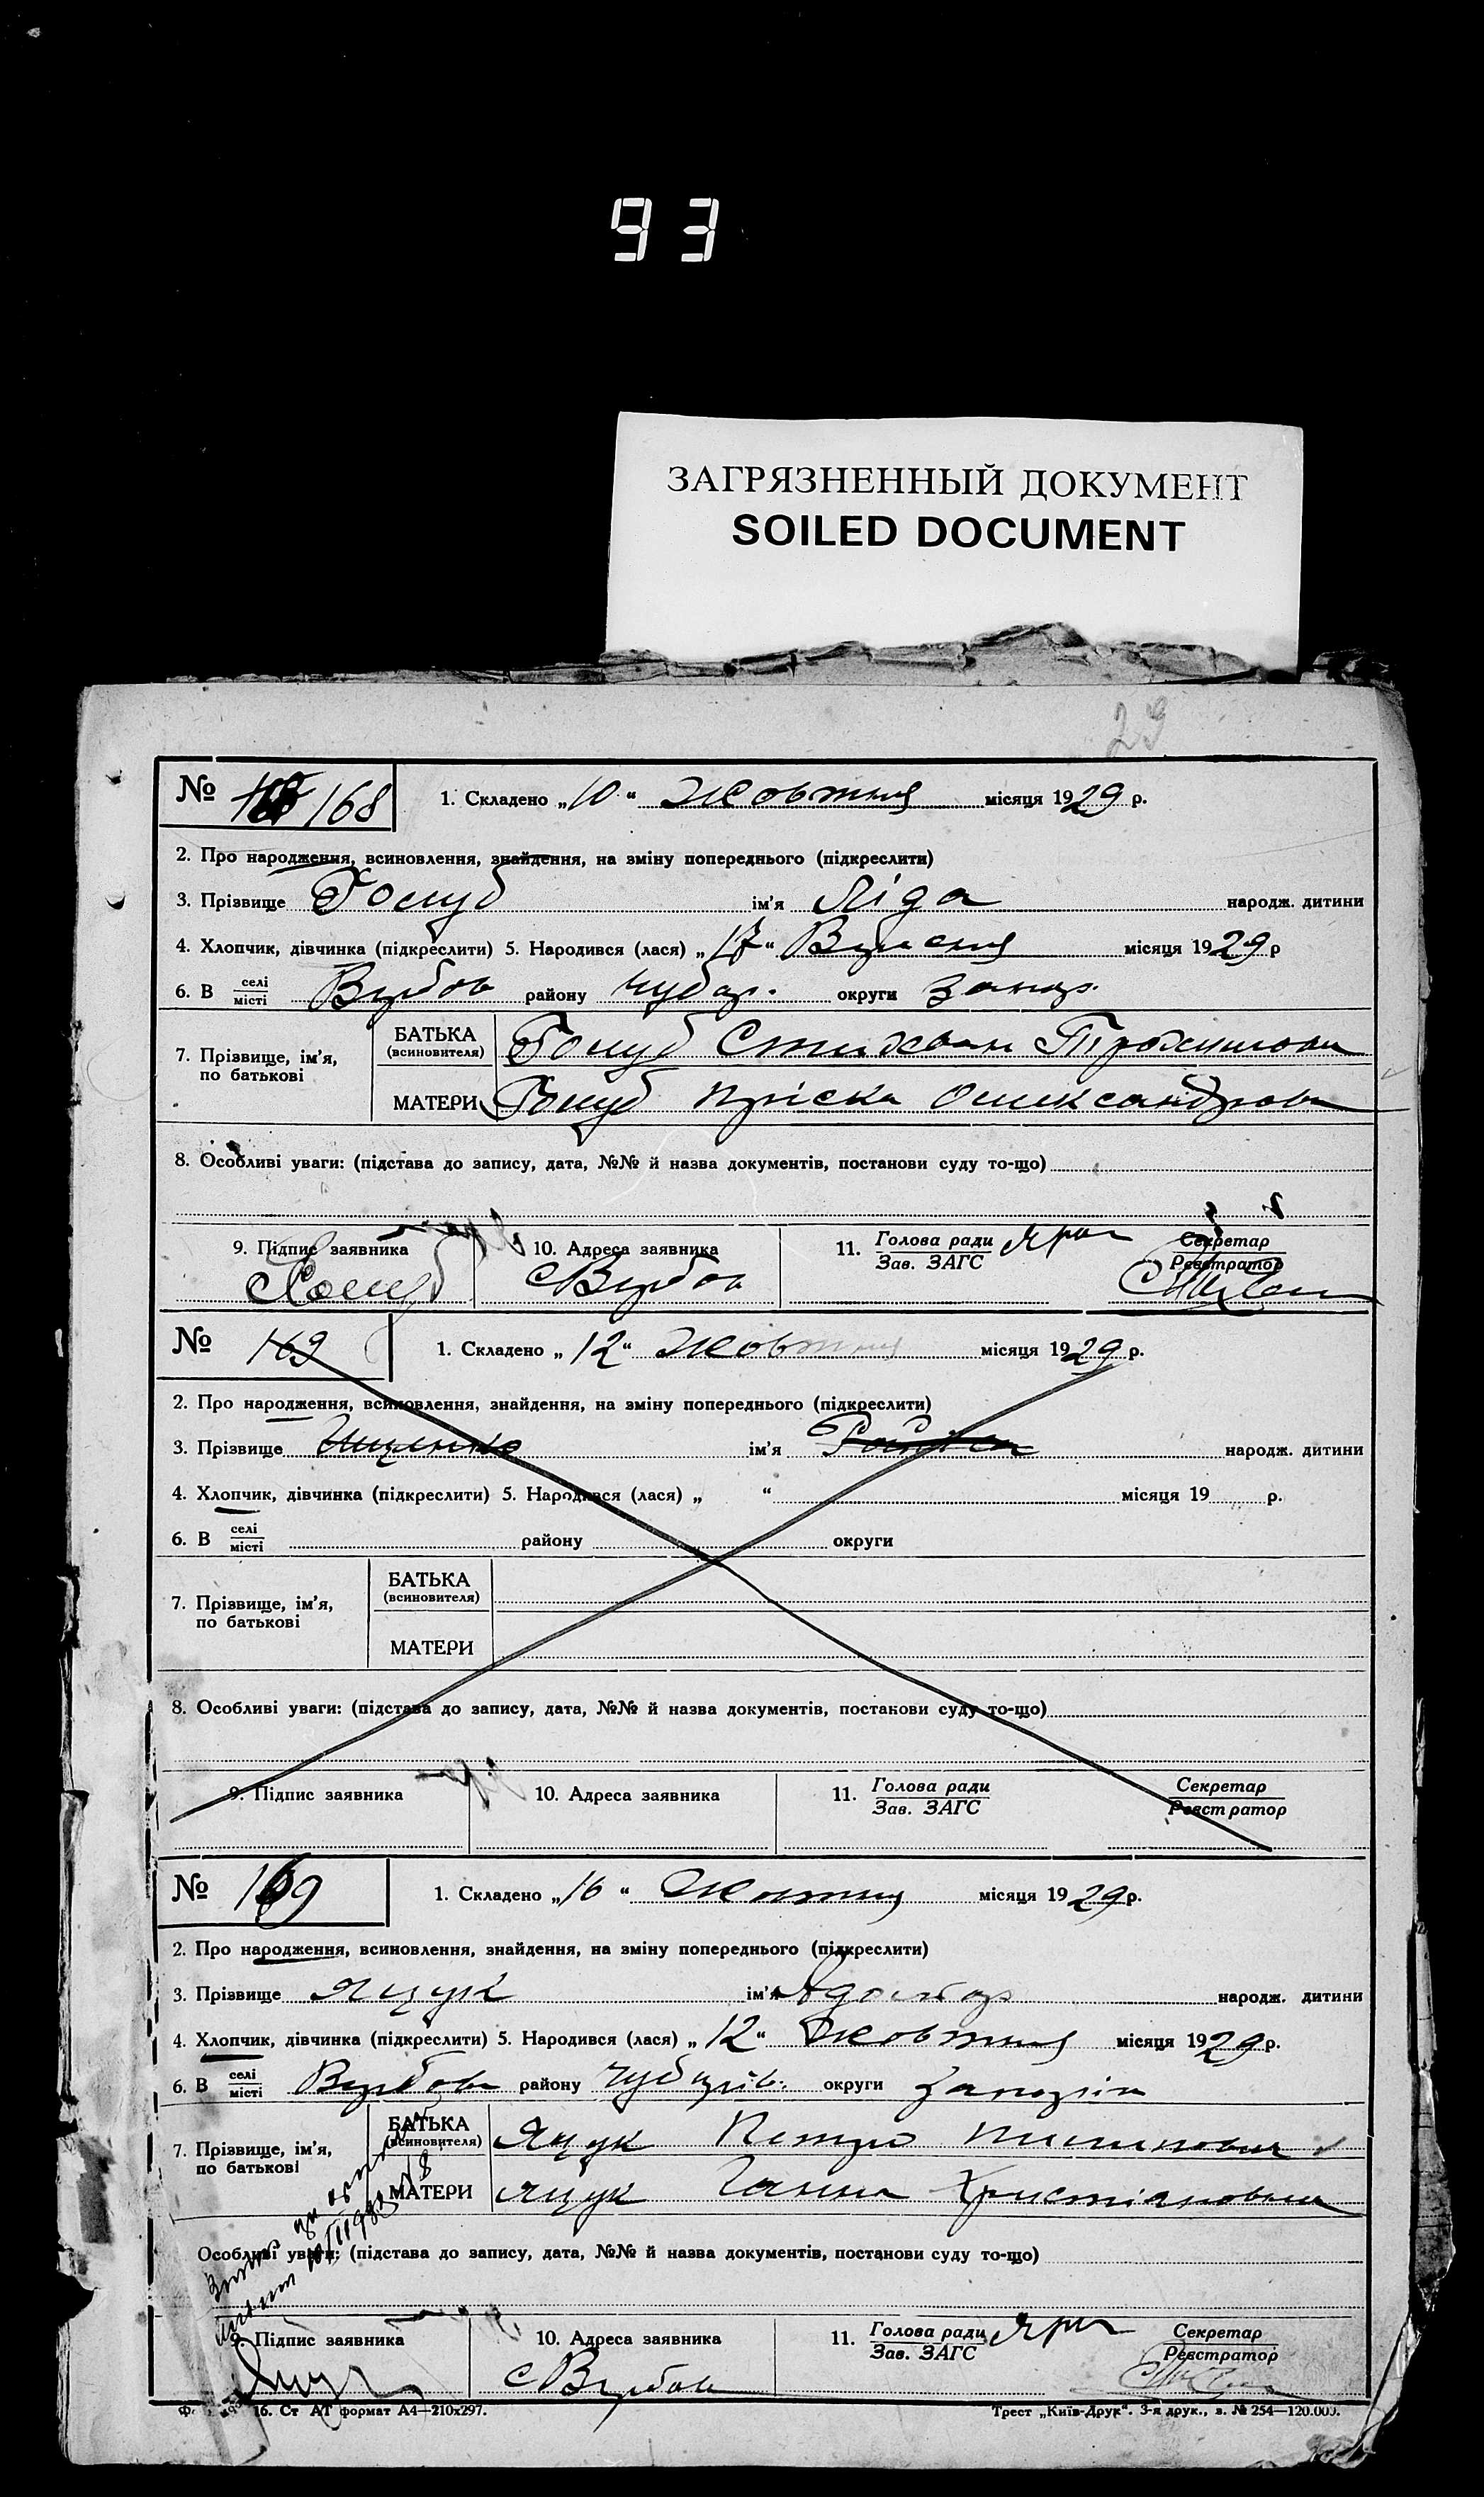 93
ЗАГРЯЗНЕННЫЙ ДОКУМЕНТ
SOILED DOCUMENT
29
№ 168
1. Складено „10“ Жовтня місяця 1929 р.
2. Про народження, всиновлення, знайдення, на зміну попереднього (підкреслити)
3. Прізвище Голуб ім'я Ліда народж. дитини
4. Хлопчик, дівчинка (підкреслити) 5. Народився (лася) „17“ Вересня місяця 1929 р
6. В селі/місті Вербов району Чубар. округи Запор.
7. Прізвище, ім'я, по батькові
БАТЬКА (всиновителя) Голуб
МАТЕРИ Голуб Пріска Олександрова
8. Особливі уваги: (підстава до запису, дата, №№ й назва документів, постанови суду то-що)
9. Підпис заявника 10. Адреса заявника 11. Голова ради/Зав. ЗАГС Секретар/Реєстратор
Голуб с Вербов
№ 169
1. Складено „12“ Жовтня місяця 1929 р.
2. Про народження, всиновлення, знайдення, на зміну попереднього (підкреслити)
3. Прізвище ім'я народж. дитини
4. Хлопчик, дівчинка (підкреслити) 5. Народився (лася) „ “ місяця 19 р.
6. В селі/місті району округи
7. Прізвище, ім'я, по батькові
БАТЬКА (всиновителя)
МАТЕРИ
8. Особливі уваги: (підстава до запису, дата, №№ й назва документів, постанови суду то-що)
9. Підпис заявника 10. Адреса заявника 11. Голова ради/Зав. ЗАГС Секретар/Реєстратор
№ 169
1. Складено „16“ Жовтня місяця 1929 р.
2. Про народження, всиновлення, знайдення, на зміну попереднього (підкреслити)
3. Прізвище Яцук ім'я народж. дитини
4. Хлопчик, дівчинка (підкреслити) 5. Народився (лася) „12“ Жовтня місяця 1929 р.
6. В селі/місті Вербов району Чубарів. округи Запорін
7. Прізвище, ім'я, по батькові
БАТЬКА (всиновителя) Яцук Петро
МАТЕРИ Яцук Ганна Христіановна
Особливі уваги: (підстава до запису, дата, №№ й назва документів, постанови суду то-що)
9. Підпис заявника 10. Адреса заявника 11. Голова ради/Зав. ЗАГС Секретар/Реєстратор
с Вербов
16. Ст АТ формат А4—210х297. Трест „Київ-Друк“. 3-я друк., з. № 254—120.000.